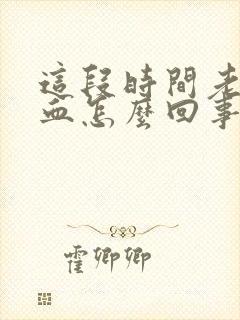 這段時間老
血怎麼回事
霍卿卿